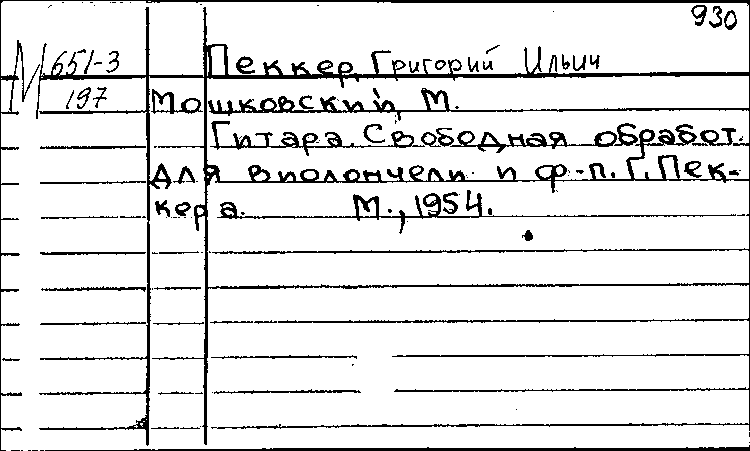 930
М 651-3 Пеккер, Григорий Ильич
197 Мошковский, М.
Гитара. Свободная обработ.
для виолончели и ф-п. Г. Пек-
кера. М., 1954.